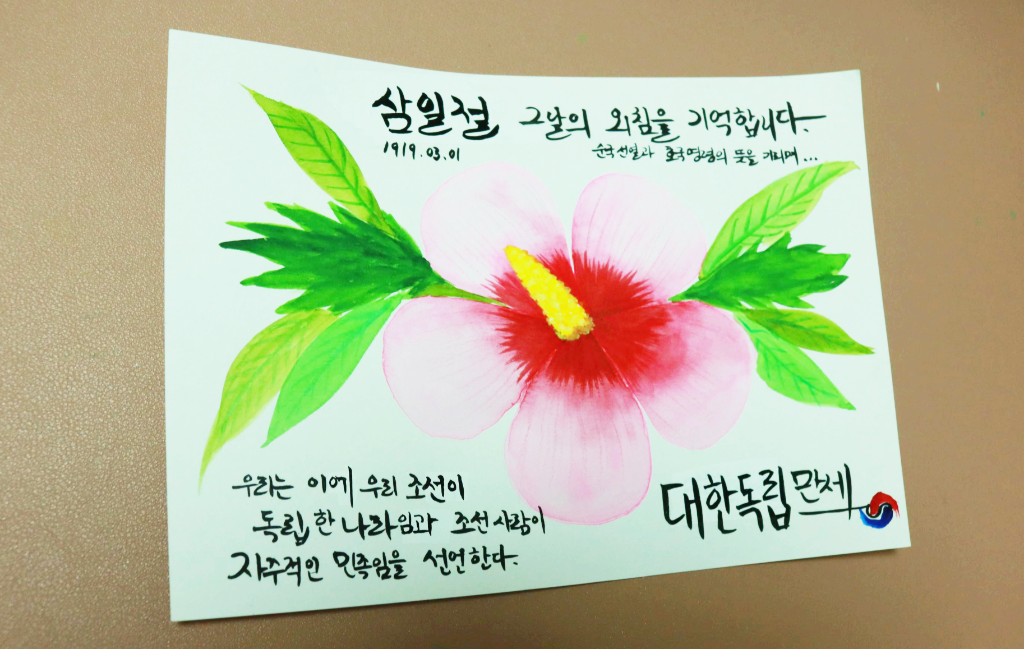 삼일절 그날의 외침을 기억합니다.
1919.03.01
순국선열과 호국영령의 뜻을 기리며...
우리는 이에 우리 조선이
독립한 나라임과 조선 사람이
자주적인 민족임을 선언한다.
대한독립만세